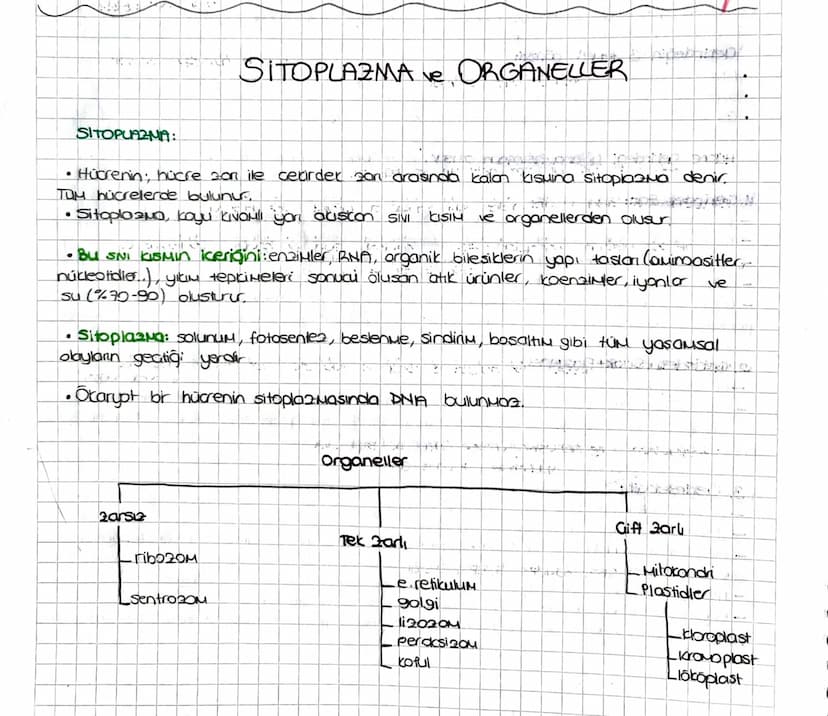 SİTOPLAZMA ve ORGANELLER
SİTOPLAZMA:
• Hücrenin; hücre zarı ile çekirdek zarı arasında kalan kısmına sitoplazma denir.
Tüm hücrelerde bulunur.
• Sitoplazma, koyu kıvamlı yarı akışkan sıvı kısım ve organellerden oluşur.
• Bu sıvı kısmın içeriğini: enzimler, RNA, organik bileşiklerin yapı taşları (aminoasitler,
nükleotidler..), yıkım tepkimeleri sonucu oluşan atık ürünler, koenzimler, iyonlar ve
su (%70-90) oluşturur.
• Sitoplazma: solunum, fotosentez, beslenme, sindirim, boşaltım gibi tüm yaşamsal
olayların geçtiği yerdir.
• Ökaryot bir hücrenin sitoplazmasında DNA bulunmaz.
Organeller
zarsız
ribozom
sentrozom
Tek zarlı
e.retikulum
golgi
lizozom
peroksizom
koful
Çift zarlı
Mitokondri
Plastidler
kloroplast
kromoplast
lökoplast